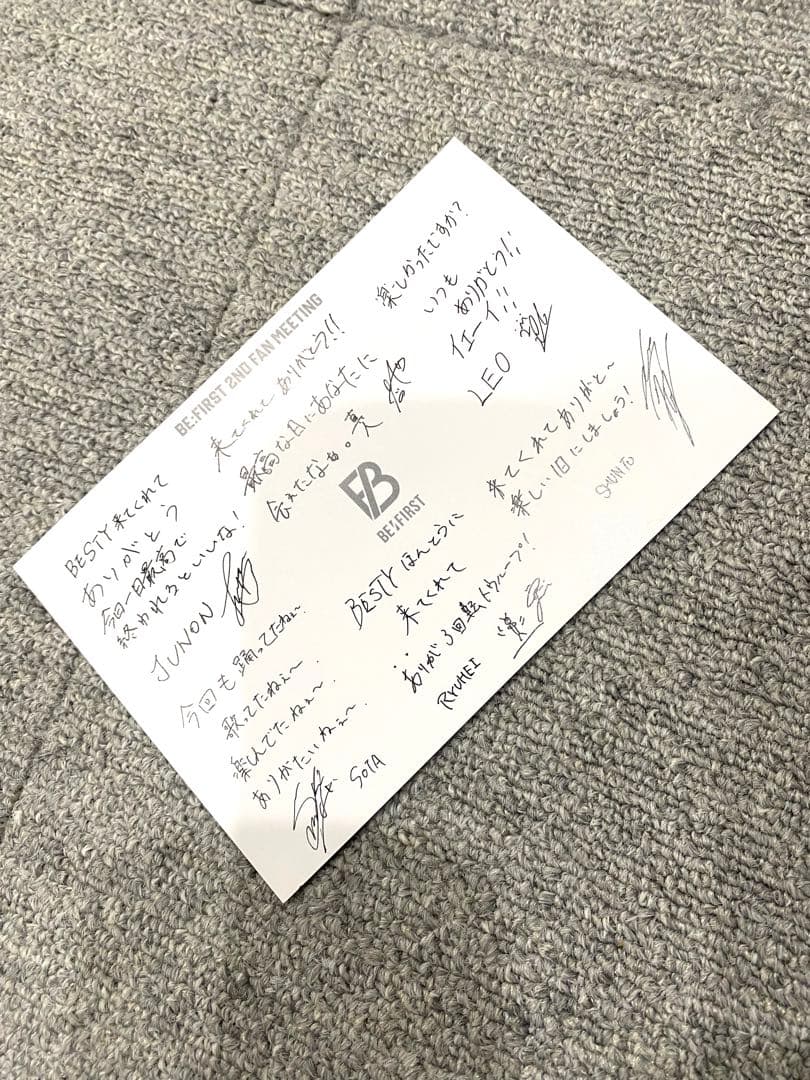 BE:FIRST 2ND FAN MEETING
BESTY来てくれて
ありがとう
今日一日最高で
終われるといいな!
JUNON
来てくれてありがとう!!
最高な日にあなたに
会えたなぁ。
楽しかったですか?
いつも
ありがとう!!
イエーイ!!
LEO
BE:FIRST
今回も踊ってたねぇ〜.
歌ってたねぇ〜.
楽しんでたねぇ〜.
ありがたいねぇ〜.
SOTA
BESTYほんとうに
来てくれて
ありが3回転トゥループ!
RYUHEI
来てくれてありがと〜
楽しい1日にしましょう!
SHUNTO